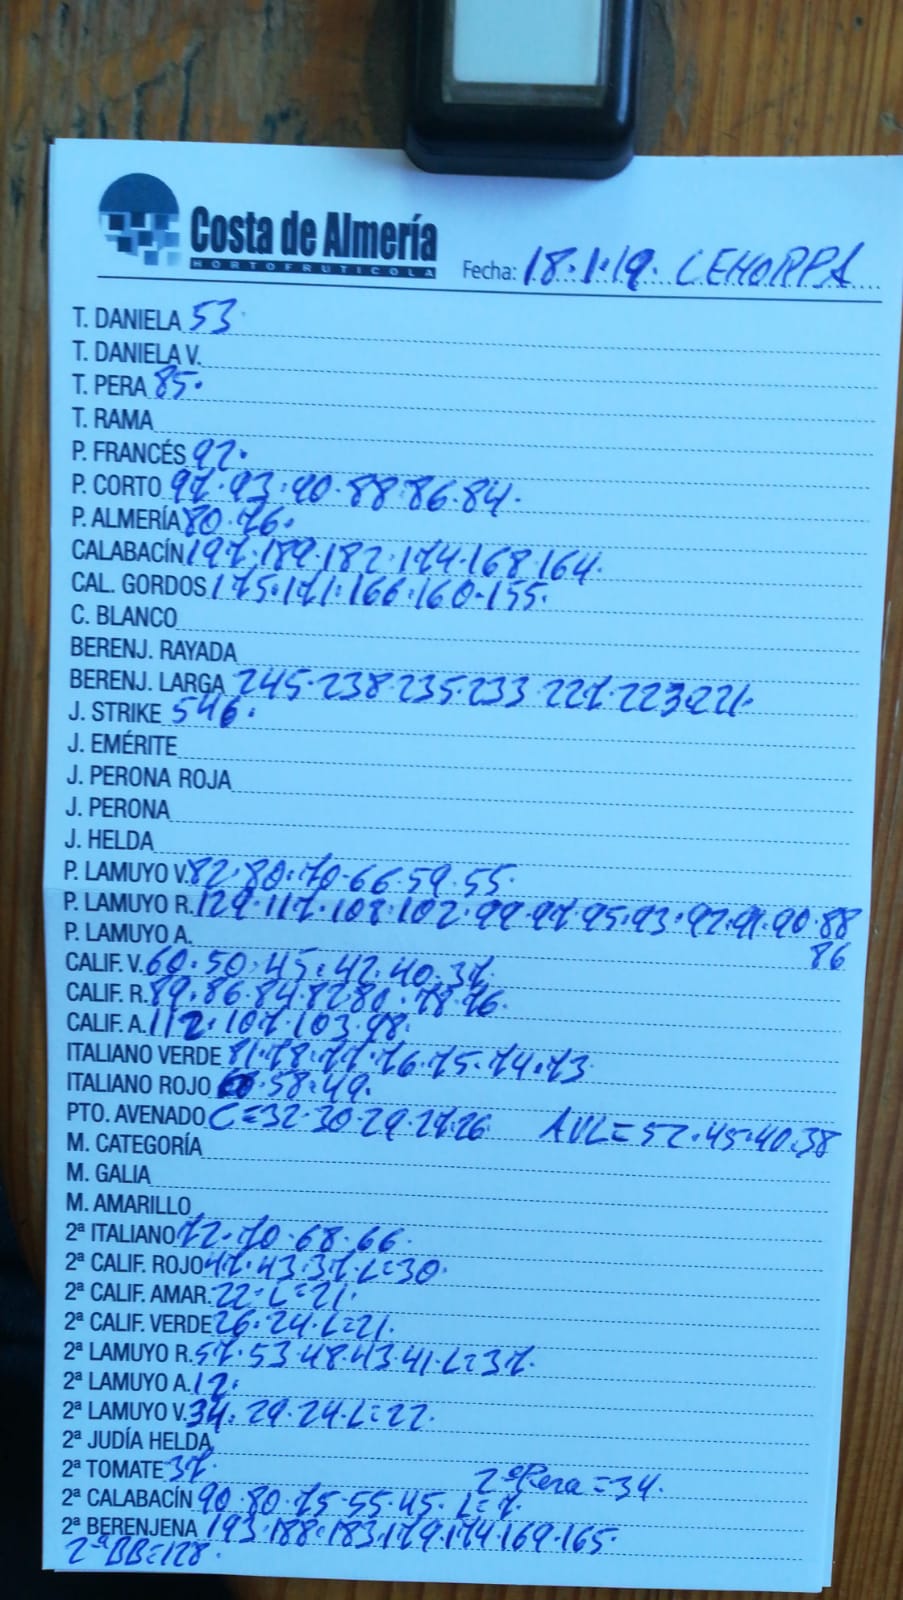 Costa de Almería
HORTOFRUTICOLA
Fecha: 18.1.19. CEHORPA
T. DANIELA 53.
T. DANIELA V.
T. PERA 85.
T. RAMA
P. FRANCÉS 92.
P. CORTO 97.93.90.88.86.84.
P. ALMERÍA 80.76.
CALABACÍN 197.189.182.174.168.164.
CAL. GORDOS 175.171.166.160.155.
C. BLANCO
BERENJ. RAYADA
BERENJ. LARGA 245.238.235.233 227.223.221.
J. STRIKE 546.
J. EMÉRITE
J. PERONA ROJA
J. PERONA
J. HELDA
P. LAMUYO V. 82.80.70.66.59.55.
P. LAMUYO R. 129.117.107.102.99.97.95.93.92.91.90.88
86
P. LAMUYO A.
CALIF. V. 60.50.45.42.40.37.
CALIF. R. 89.86.84.82.80.78.76.
CALIF. A. 112.107.103.98.
ITALIANO VERDE 81.78.77.76.75.74.73
ITALIANO ROJO 58.49.
PTO. AVENADO C=32.30.29.27.26 AVL=52.45.40.38
M. CATEGORÍA
M. GALIA
M. AMARILLO
2ª ITALIANO 72.70.68.66.
2ª CALIF. ROJO 47.43.37.L=30.
2ª CALIF. AMAR. 22.L=21.
2ª CALIF. VERDE 26.24.L=21.
2ª LAMUYO R. 57.53.48.43.41.L=37.
2ª LAMUYO A. 12.
2ª LAMUYO V. 34.29.24.L=22.
2ª JUDÍA HELDA
2ª TOMATE 37. 2ª Pera=34.
2ª CALABACÍN 90.80.75.55.45. L=7.
2ª BERENJENA 193.188.183.179.174.169.165.
2ª BB=128.